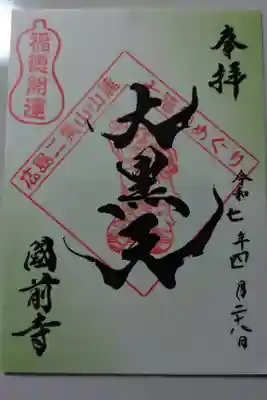 奉拝
令和七年四月二十八日
大黒天
國前寺
福徳開運
広島二葉山山麓
七福神めぐり